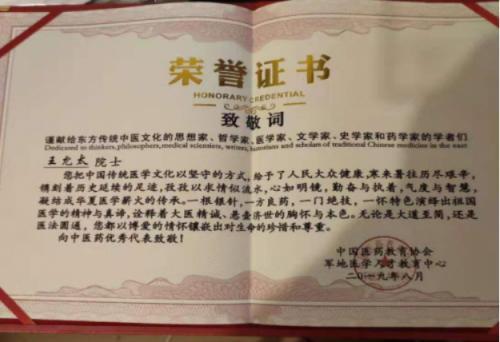 荣誉证书
HONORARY CREDENTIAL
致敬词
谨献给东方传统中医文化的思想家、哲学家、医学家、文学家、史学家和药学家的学者们
Dedicated to thinkers, philosophers, medical scientists, writers, historians and scholars of traditional Chinese medicine in the east
王允太 院士
您把中国传统医学文化以坚守的方式,给予了人民大众健康,寒来暑往历尽艰辛,
镌刻着历史延续的足迹,孜孜以求情似流水,心如明镜,勤奋与执着,气度与智慧,
凝结成华夏医学薪火的传承。一根银针,一方良药,一门绝技,一怀特色演绎出祖国
医学的精神与真谛,诠释着大医精诚、悬壶济世的胸怀与本色。无论是大道至简,还是
医法圆通,您都以博爱的情怀镶嵌出对生命的珍惜和尊重。
向中医药优秀代表致敬!
中国医药教育协会
军地医学人才教育中心
二〇一九年八月